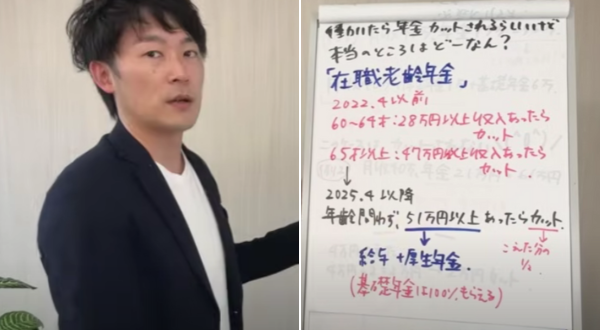 働いたら年金カットされるらしいけど
本当のところはどーなん？
「在職老齢年金」
2022.4以前
60〜64才：28万円以上収入あったら
カット
65才以上：47万円以上収入あったら
カット
↓
2025.4以降
年齢問わず、51万円以上あったらカット
↓
↓
こえた分の
1/2
給与＋厚生年金
(基礎年金は100%もらえる)